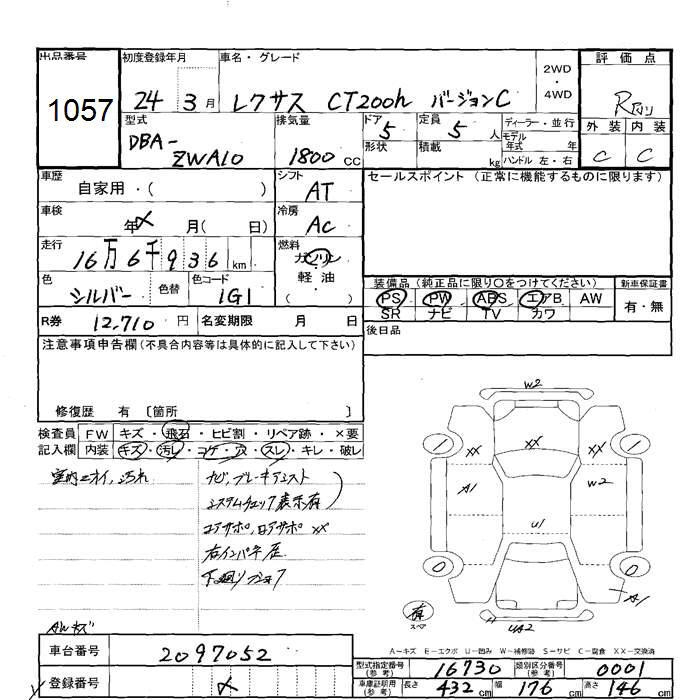 出品番号
1057
初度登録年月
24 3月
車名・グレード
レクサス CT200h バージョンC
2WD
4WD
評価点
R
外装 内装
C C
型式
DBA-
ZWA10
排気量
1800 cc
ドア 5
形状
定員 5 人
積載 kg
ディーラー・並行
モデル年式 年
ハンドル 左・右
車歴
自家用・( )
シフト
AT
セールスポイント(正常に機能するものに限ります)
車検
年 メ 月( 日)
冷房
AC
走行
16万6千936 km
燃料
ガソリン
軽油
( )
色
シルバー
色替
色コード
1G1
装備品(純正品に限り〇をつけてください)
PS PW ABS エアB AW
SR ナビ TV カワ
新車保証書
有・無
R券 12,710 円
名変期限 月 日
後日品
注意事項申告欄(不具合内容等は具体的に記入して下さい)
修復歴 有 〔箇所 〕
検査員 FW キズ・飛石・ヒビ割・リペア跡・×要
記入欄 内装 キズ・汚レ・コゲ・穴・スレ・キレ・破レ
室内ニオイ、汚れ
ナビ、ブレーキアシスト
システムチェック表示有
コアサポ、ロアサポ XX
右インパネ
下廻り
AWキズ
W2
XX XX XX
A1 W2
U1
A1
UA2
有
スペア
A-キズ E-エクボ U-凹み W-補修跡 S-サビ C-腐食 XX-交換済
車台番号 2097052
登録番号 メ
型式指定番号(参考) 16730
類別区分番号(参考) 0001
車庫証明用(参考) 長さ 432 cm 幅 176 cm 高さ 146 cm